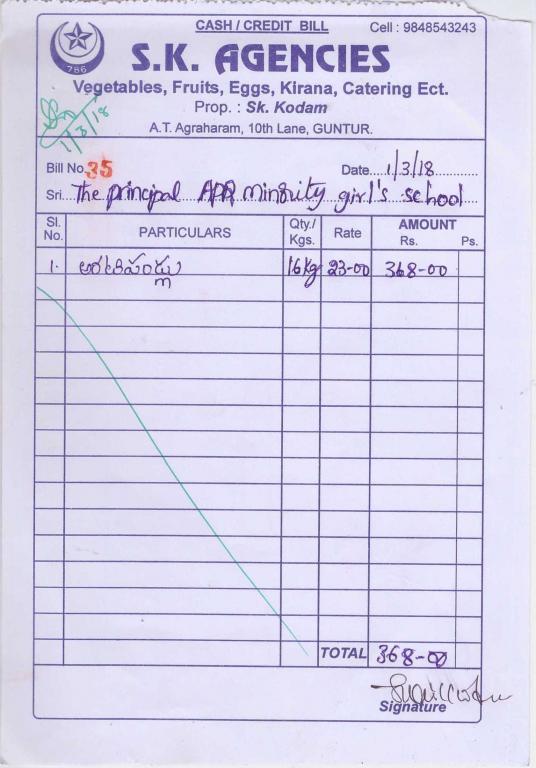 CASH / CREDIT BILL
Cell : 9848543243
786
S.K. AGENCIES
Vegetables, Fruits, Eggs, Kirana, Catering Ect.
Prop. : Sk. Kodam
A.T. Agraharam, 10th Lane, GUNTUR.
1/3/18
Bill No. 35 Date 1/3/18
Sri. The principal APR minority girl's school
Sl. No. PARTICULARS Qty./ Kgs. Rate AMOUNT Rs. Ps.
1. అరటిపండ్లు 16 Kg 23-00 368-00
TOTAL 368-00
Signature